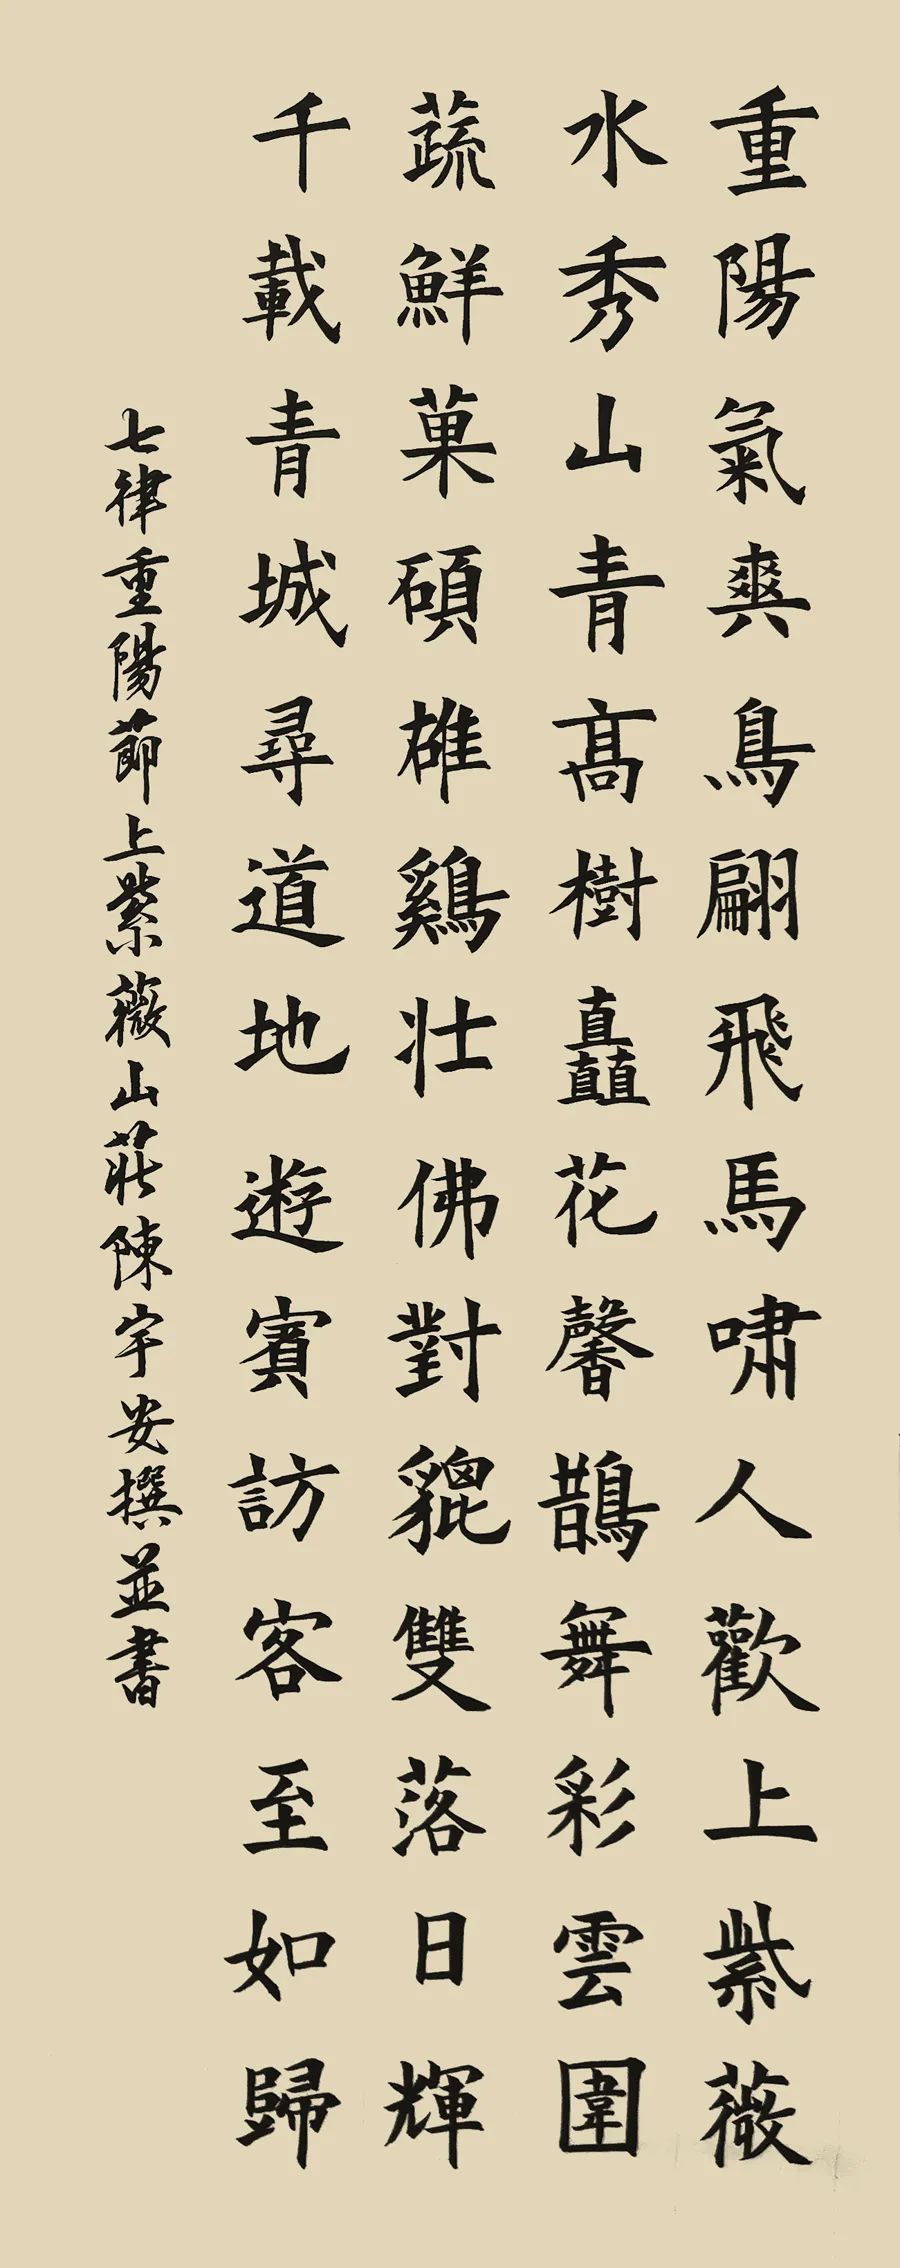 重陽氣爽鳥翩飛馬嘯人歡上紫薇
水秀山青髙樹矗花馨鵲舞彩雲圍
蔬鮮菓碩雄鷄壯佛對貔雙落日輝
千載青城尋道地遊賓訪客至如歸
七律重陽節上紫薇山莊陳宇安撰並書